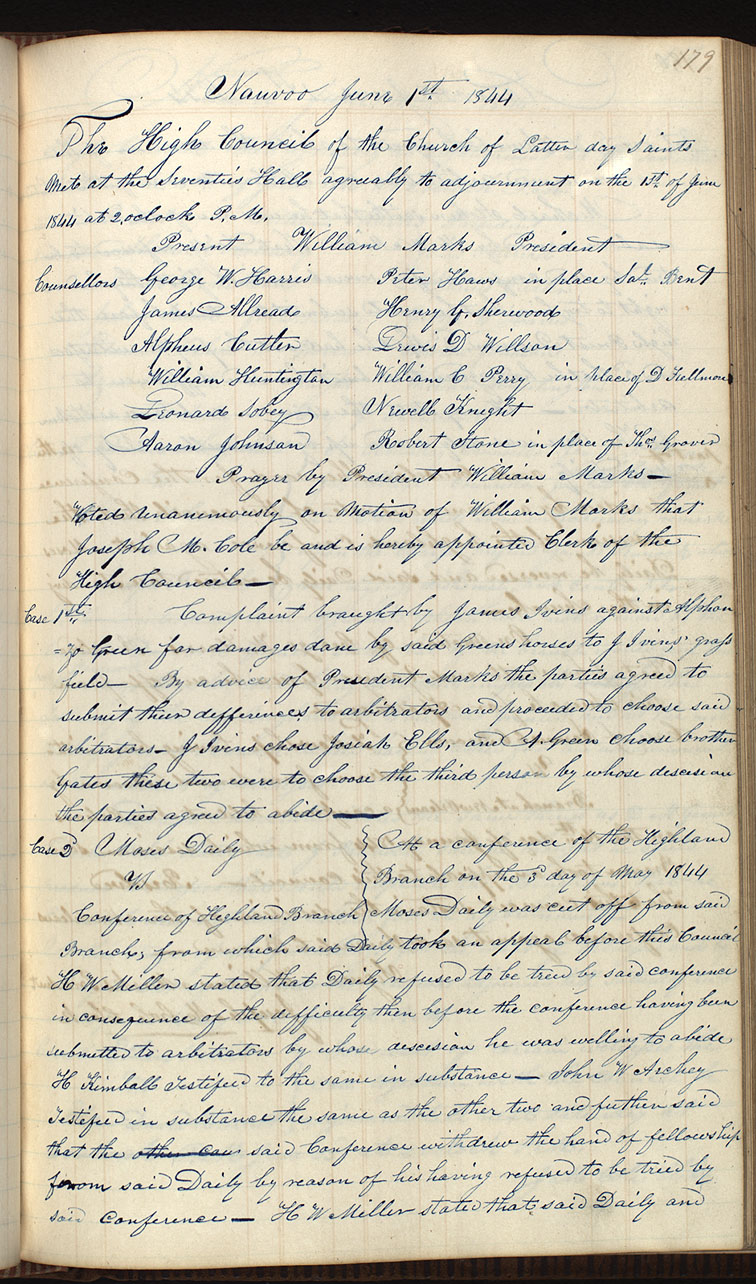 179
Nauvoo June 1st. 1844
The High Council of the Church of Latter day Saints
Met at the Seventies Hall agreeably to adjournment on the 1st. of June
1844 at 2, oclock P. M.
Present William Marks President
Counsellors George W. Harris Peter Haws in place Saml. Bent
James Allread Henry G. Sherwood
Alpheus Cutler Lewis D Willson
William Huntington William C Perry in place of D Fullmore
Leonard Sobey Newell Knight
Aaron Johnson Robert Stone in place of Thos. Grover
Prayer by President William Marks —
Voted unanimously on Motion of William Marks that
Joseph M. Cole be and is hereby appointed Clerk of the
High Council —
Case 1st. Complaint braught by James Ivins against Alphon
=zo Green for damages done by said Greens horses to J Ivins' grass
field — By advice of President Marks the parties agreed to
submit thier defferences to arbitrators and proceeded to choose said
arbitrators — J Ivins chose Josiah Ells, and A Green choose brother
Gates these two were to choose the third person by whose descision
the parties agreed to abide —
Case 2d Moses Daily At a conference of the Highland
VS Branch on the 3d day of May 1844
Conference of Highland Branch Moses Daily was cut off from said
Branch, from which said Daily took an appeal before this Council
H W Miller stated that Daily refused to be tried by said conference
in consequence of the difficulty then before the conference having been
submitted to arbitrators by whose descision he was welling to abide
H Kimball Testifeed to the same in substance — John W Archey
Testifeed in substance the same as the other two and futher said
that the other caus said Conference withdrew the hand of fellowship
from said Daily by reason of his having refused to be tried by
said conference — H W Miller stated that said Daily and